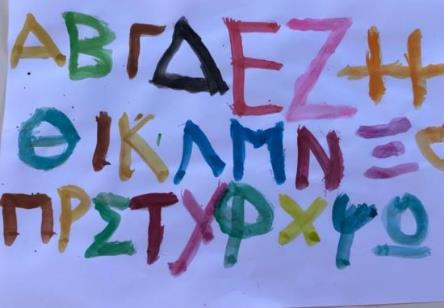 ΑΒΓΔΕΖΗ
ΘΙΚΛΜΝΞΟ
ΠΡΣΤΥΦΧΨΩ